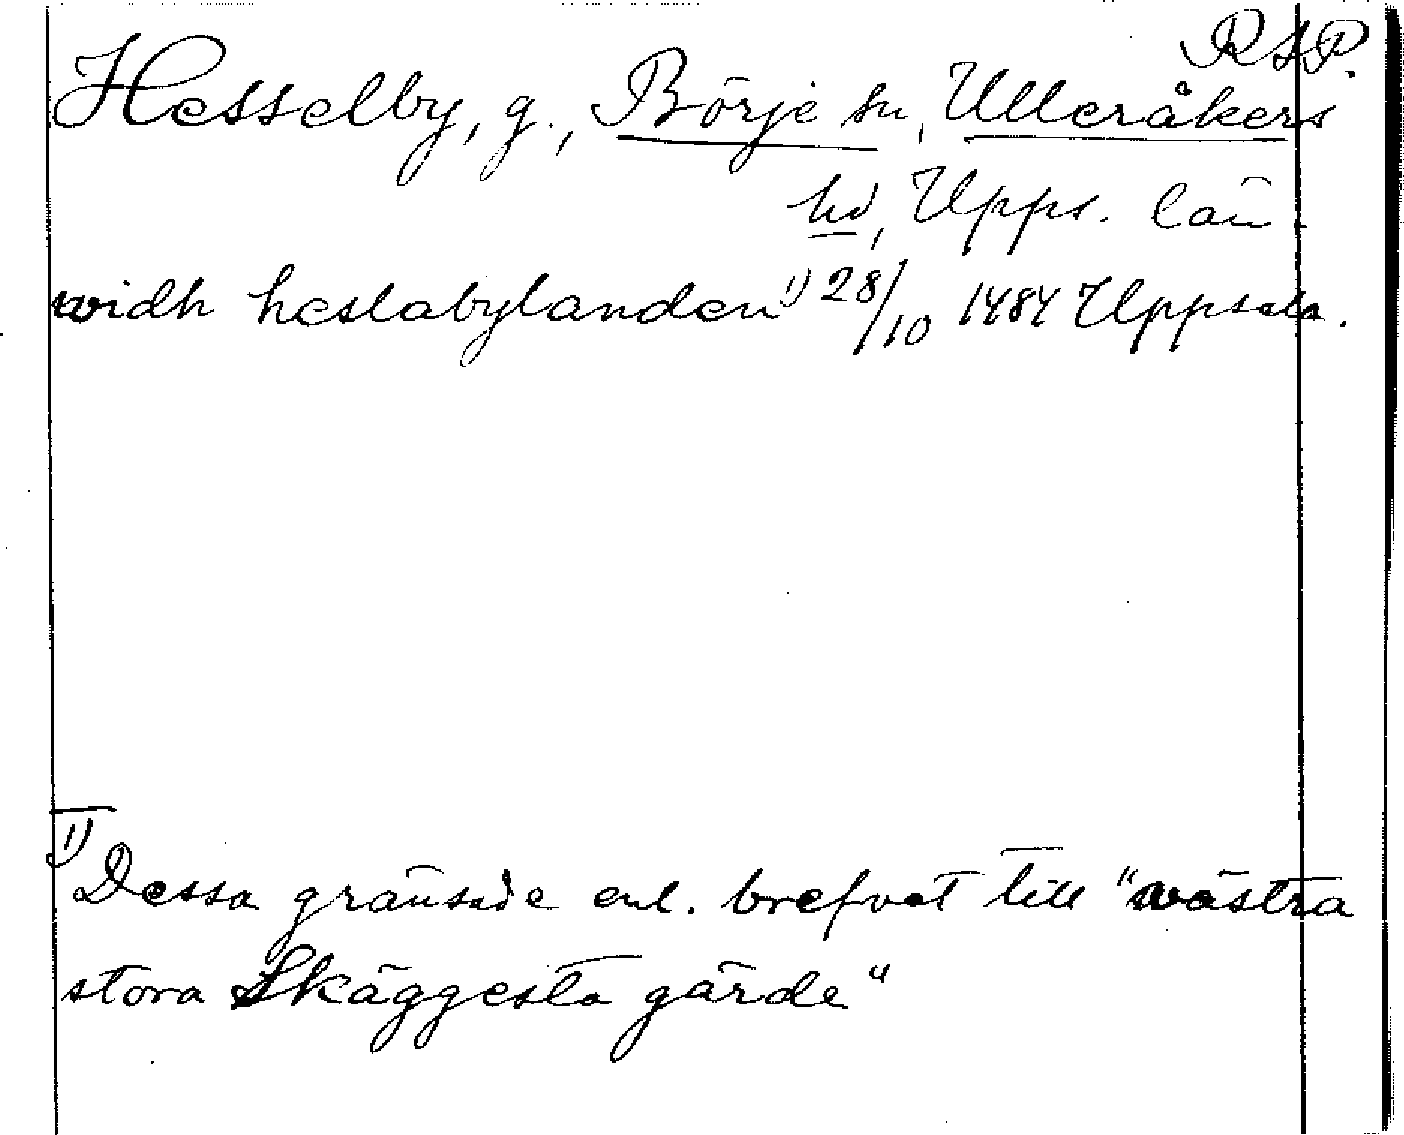 RSP.
Hesselby, g., Börje sn, Ulleråkers
hd, Upps. län.
widh heslabylanden 1) 28/10 1484 Uppsala.
1) Dessa gränsade enl. brefvet till "västra
stora Skäggesta gärde"